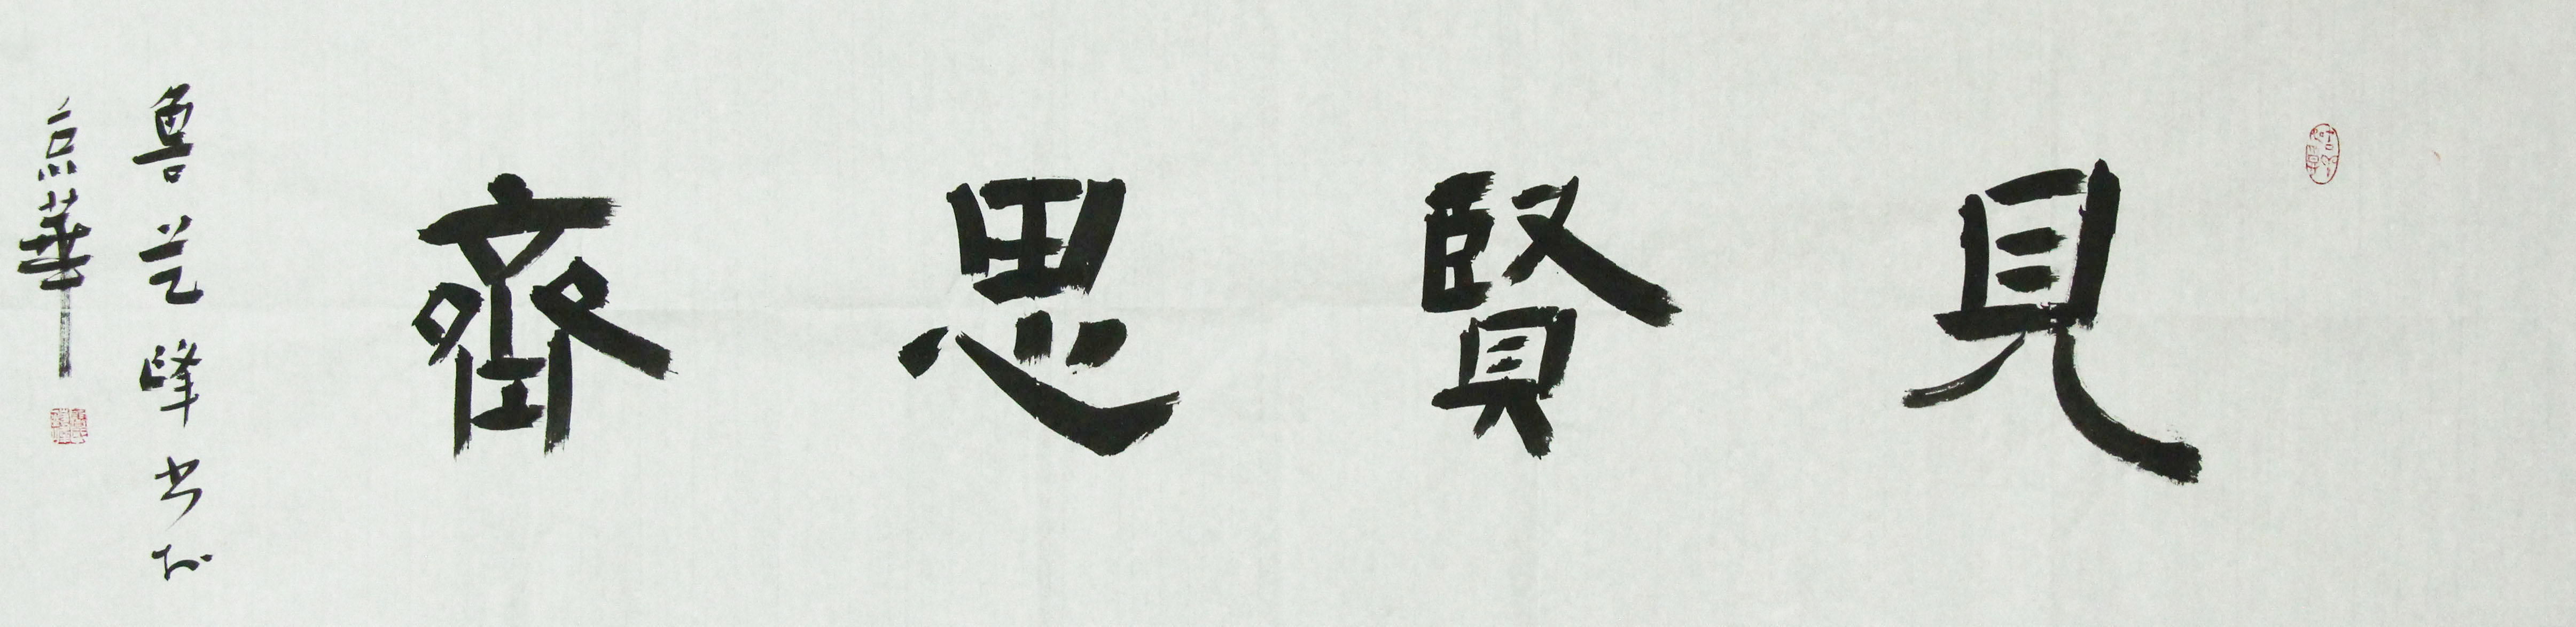 見賢思齊
魯艺峰书於
京華